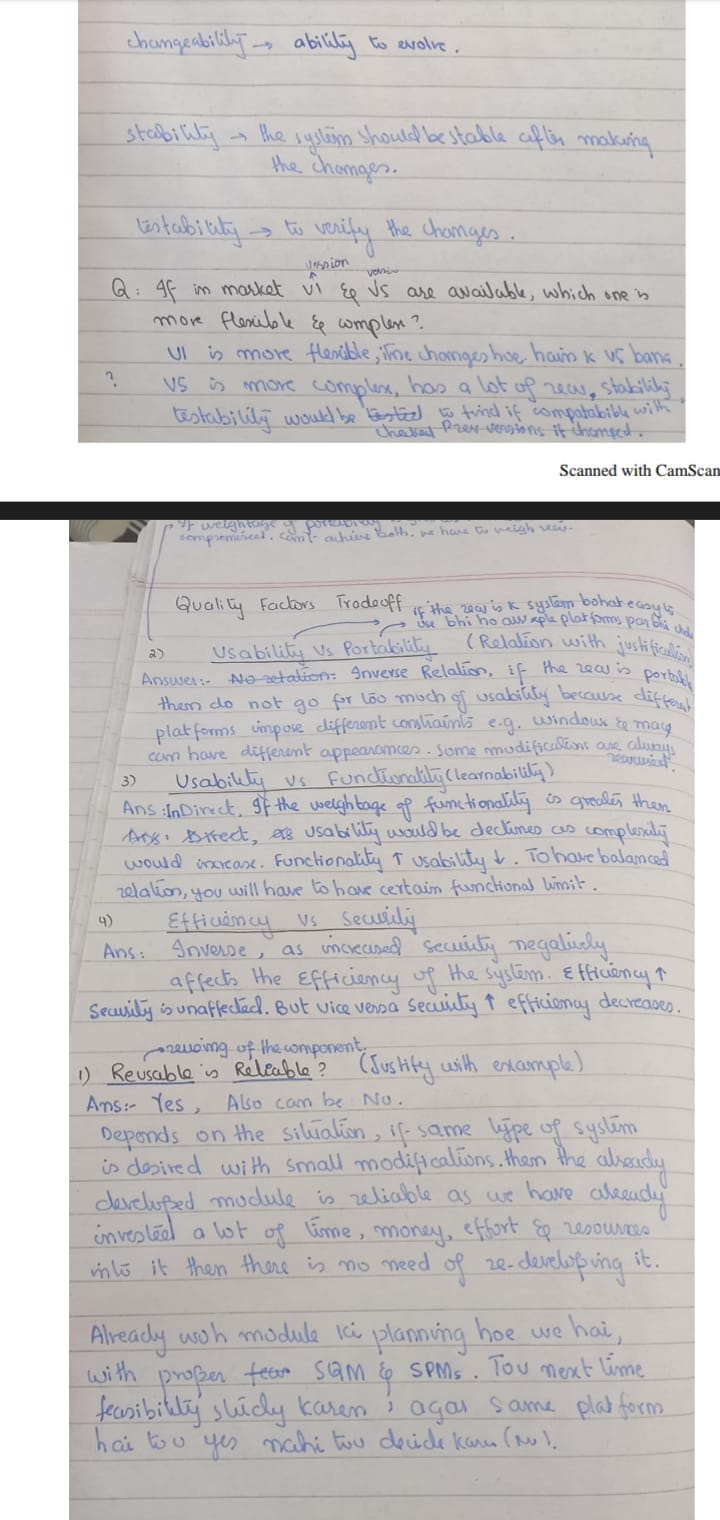 changeability → ability to evolve.
stability → the system should be stable after making
the changes.
testability → to verify the changes.
version
Q: If in market V1 & V5 are available, which one is
more flexible & complex?
V1 is more flexible, itne changes hoe hain k V5 bana.
? V5 is more complex, has a lot of req, stability,
testability would be tested to find if compatabible with
checked Prev versions if changed.
Scanned with CamScan
→ If weightage of portability
compromised. Can't achive both. we have to weigh
Quality Factors Tradeoff if the req is k system bohat easy to
use bhi ho aur platforms par bhi
2) Usability Vs Portability (Relation with justification)
Answer:- No relation: Inverse Relation, if the req is portable
then do not go for too much of usability because different
platforms impose different constraints e.g. windows & mac
can have different appearances. Some modifications are always
required.
3) Usability vs Functionality (learnability)
Ans: InDirect, If the weightage of functionality is greater then
Ans: Direct, usability would be declined as complexity
would increase. Functionality ↑ usability ↓. To have balanced
relation, you will have to have certain functional limit.
4) Efficiency vs Security
Ans: Inverse, as increased security negatively
affects the Efficiency of the system. Efficiency ↑
Security is unaffected. But vice versa security ↑ efficiency decreases.
→ reusing of the component.
1) Reusable is Reliable? (Justify with example)
Ans:- Yes, Also can be No.
Depends on the situation, if same type of system
is desired with small modifications. then the already
developed module is reliable as we have already
invested a lot of time, money, effort & resources
into it then there is no need of re-developing it.
Already woh module ki planning hoe we hai,
with proper SQM & SPMs. Tou next time
feasibility study karen; agar same platform
hai tou yes nahi tou decide karen (No).